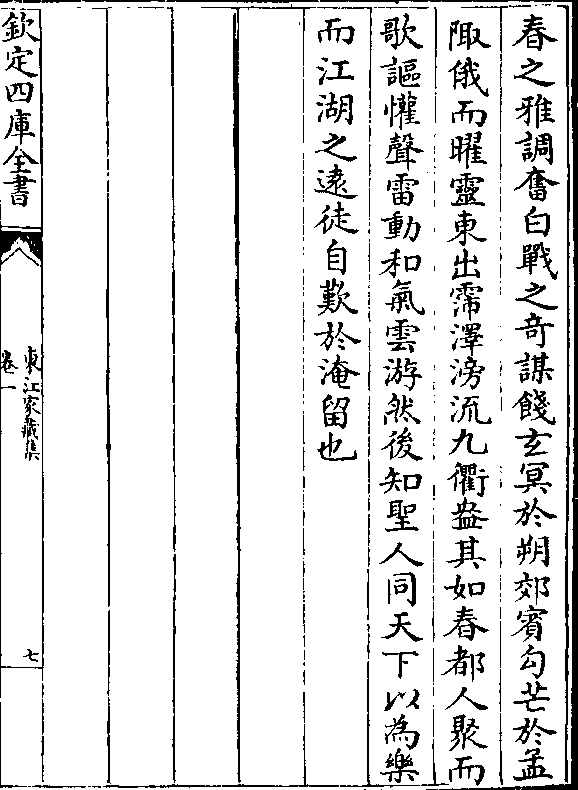 春之雅調奮白戰之奇謀餞玄冥於朔郊賓勾芒於孟
陬俄而曜靈東出霈澤滂流九衢盎其如春都人聚而
歌謳懽聲雷動和氣雲游然後知聖人同天下以為樂
而江湖之遠徒自歎於淹留也
欽定四庫全書
東江家藏集
卷一
七